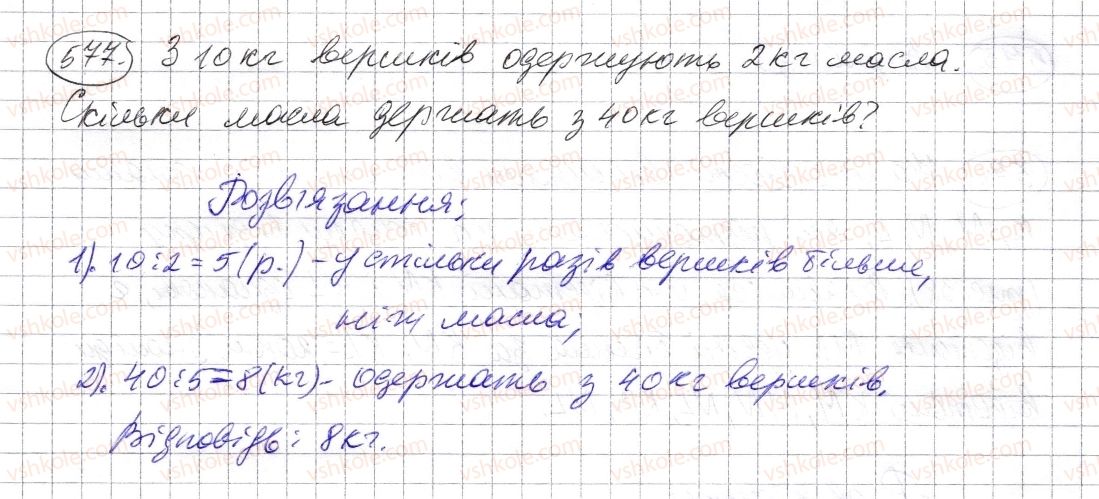 577. З 10 кг вершків одержують 2 кг масла.
Скільки масла держать з 40 кг вершків?
Розв'язання:
1). 10:2=5(р.) - у стільки разів вершків більше,
ніж масла;
2). 40:5=8(кг) - одержать з 40 кг вершків.
Відповідь: 8 кг.